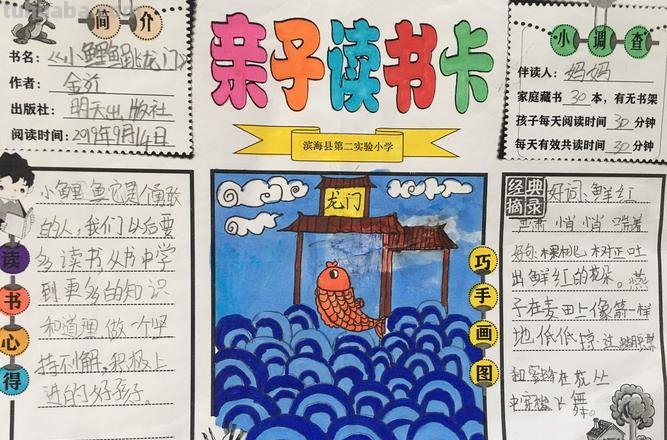 简介
书名：《小鲤鱼跳龙门》
作者：金近
出版社：明天出版社
阅读时间：2019年9月14日
亲子读书卡
滨海县第二实验小学
小调查
伴读人：妈妈
家庭藏书 30 本，有无书架
孩子每天阅读时间 30 分钟
每天有效共读时间 30 分钟
读书心得
小鲤鱼它是个勇敢
的人，我们以后要
多读书，从书中学
到更多的知识
和道理做一个坚
持不懈，积极上
进的好孩子。
龙门
巧手画图
经典摘录
好词：鲜红
悄悄
好句：棵桃树正吐
出鲜红的花朵。燕
子在麦田上像箭一样
地低低掠过
和蜜蜂在花丛
舞。